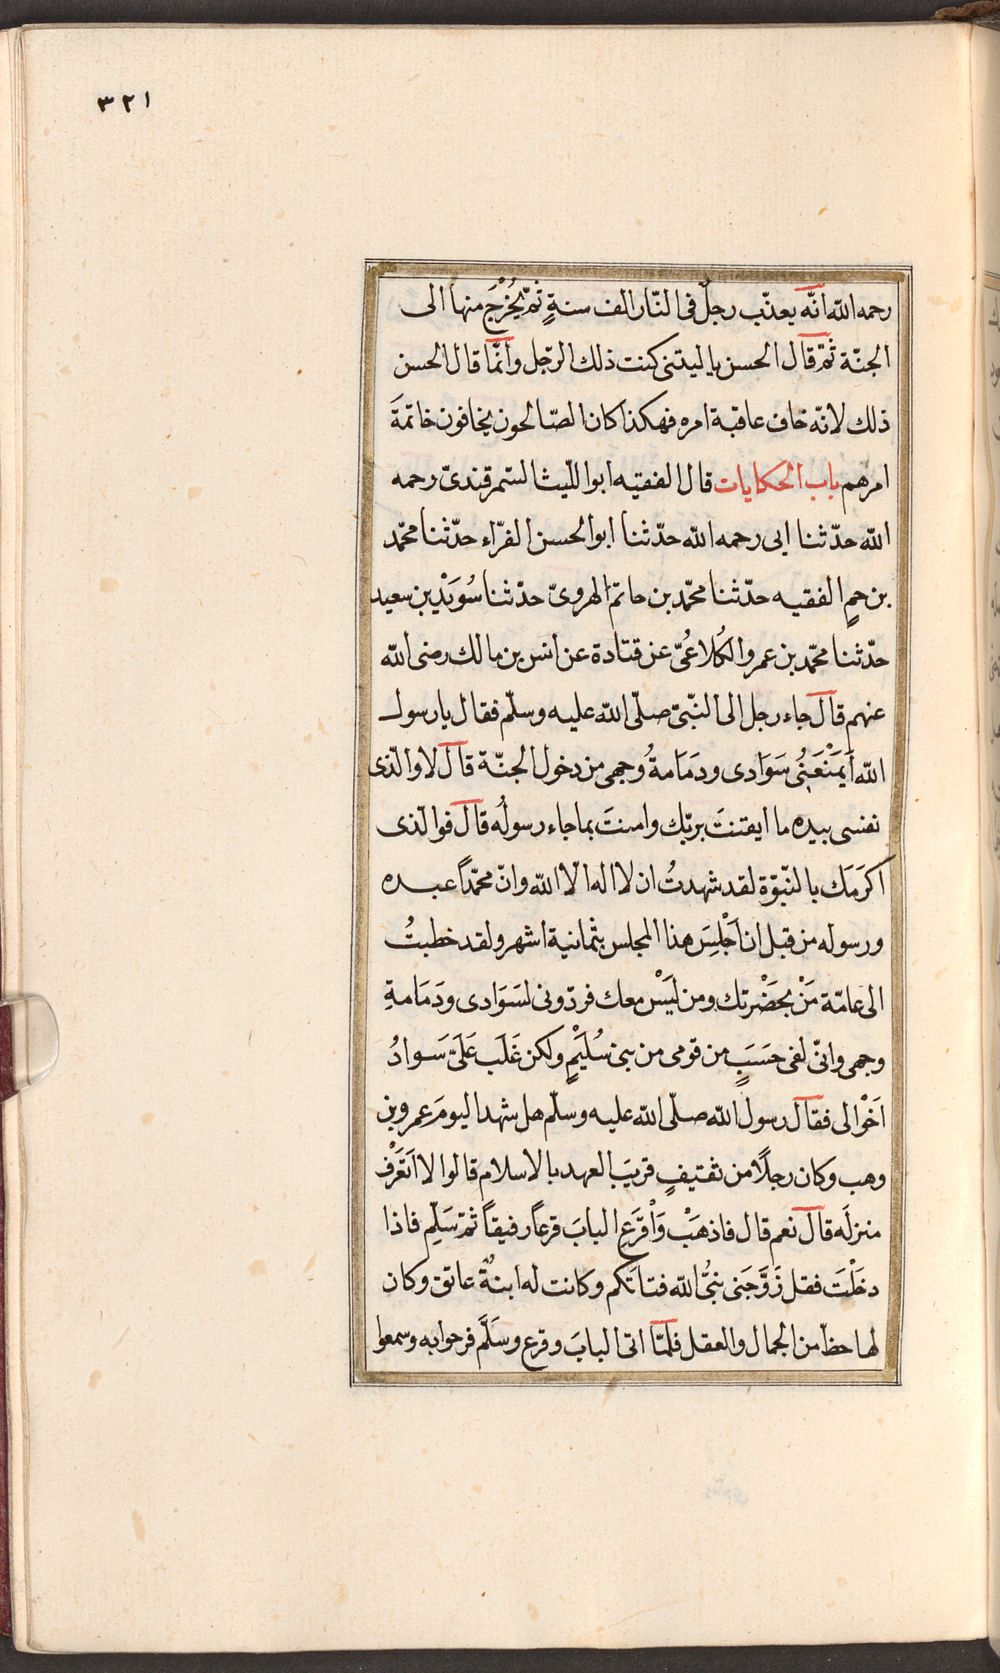 ٣٢١
رحمه الله انّه يعذّب رجلٌ فى النّار الف سنةٍ ثمّ يُخْرَج منها الى
الجنّة ثمّ قال الحسن ياليتنى كنت ذلك الرّجل وانّما قال الحسن
ذلك لانّه خاف عاقبة امره فهكذا كان الصّالحون يخافون خاتمةَ
امرهم باب الحكايات قال الفقيه ابوا اللّيث السّمرقندىّ رحمه
الله حدّثنا ابى رحمه الله حدّثنا ابو الحسن الفرّاء حدّثنا محمّد
بن حمٍ الفقيه حدّثنا محمّد بن حاتم الهروىّ حدّثنا سُوَيْد بن سعيد
حدّثنا محمّد بن عمرو الكُلاعُىّ عن قتادة عن انس بن مالك رضى الله
عنهم قال جاء رجل الى النّبىّ صلّى الله عليه وسلّم فقال يارسول
الله اَيَمْنَعَنِى سَوَادى ودَمَامةُ وجهى من دخول الجنّة قال لا والّذى
نفسى بيده ما ايقنتَ بربّك وامنتَ بما جاء رسولُه قال فوالّذى
اكرَمَك بالنّبوّة لقد شهدتُ ان لا اله الّا الله وانّ محمّداً عبده
ورسوله من قبل ان اَجْلِسَ هذا المجلس بثمانية اشهر ولقد خطبتُ
الى عامّة مَنْ بحَضْرتك ومن لَيْس معك فردّونى لسَوَادى ودَمَامةِ
وجهى وانّى لفى حسَبَبٍ من قومى من بنى سُلَيْمٍ ولكن غَلَب عَلَىَّ سَوادُ
اَخْوالى فقال رسول الله صلّى الله عليه وسلّم هل شهد اليومَ عمرو بن
وهب وكان رجلًا من ثقيفٍ قريبَ العهد بالاسلام قالوا لا اَتَعْرْف
منزلَه قال نعم قال فاذهَبْ وَاْقْرَعِ البابَ قرعًا رفيقاً ثمّ سَلِّم فاذا
دخَلْتَ فقل زَوَّجَنى نبىُّ الله فتاتَكم وكانت له ابنةٌ عاتق وكان
لها حظّ من الجمال والعقل فلمّا اتى البابَ وقرع وسَلَّم فرحوا به وسمعوا